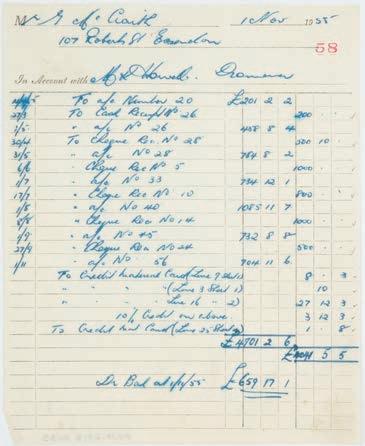 Mr G McCraith 1 Nov 1955
107 Roberts St Essendon
58
In Account with
To a/c Number 20 £201 2 2
27/3 To Cash Receipt No 26 200 . .
1/5 " a/c No 26 458 8 4
30/4 To Cheque Rec No 28 500 10 .
31/5 " a/c No 28 784 8 2
6/6 " Cheque Rec No 5 1000 . .
1/7 " a/c No 33 734 12 1
17/7 " Cheque Rec No 10 800 . .
1/8 " a/c No 40 1085 11 7
" Cheque Rec No 14 1000 . .
1/9 " a/c No 45 732 8 8
" Cheque Rec No 24 500 . .
1/11 " a/c No 56 704 11 6
To Credit Card (Line 9 Sheet 1) 8 . 3
" " " (Line 3 Sheet 1) 10 .
" " " Line 16 " 2) 27 12 3
10% Credit on above. 3 12 3
To Credit Card (Line 25 Sheet 1 . 8
£4701 2 6
£4041 5 5
Dr Bal at 1/11/55 £659 17 1